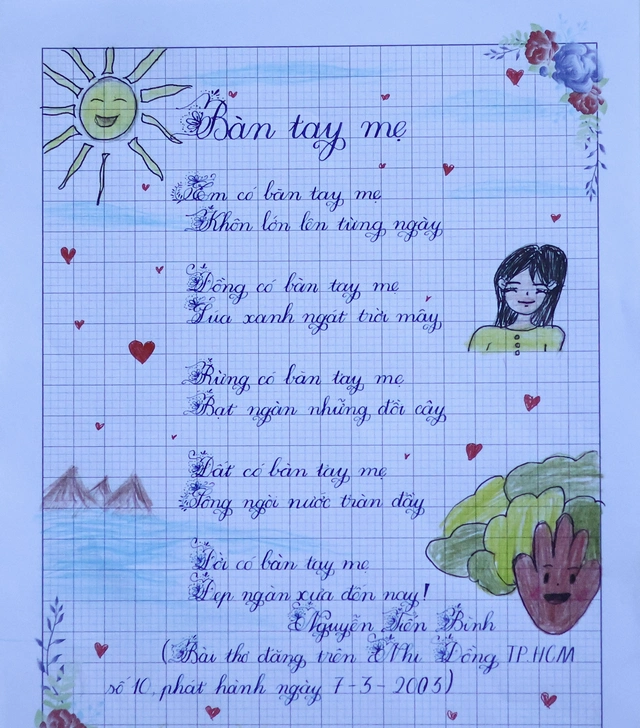 Bàn tay mẹ
Em có bàn tay mẹ
Khôn lớn lên từng ngày
Đồng có bàn tay mẹ
Lúa xanh ngát trời mây
Rừng có bàn tay mẹ
Bạt ngàn những đồi cây
Đất có bàn tay mẹ
Sông ngòi nước tràn đầy
Đời có bàn tay mẹ
Đẹp ngàn xưa đến nay!
Nguyễn Tiến Bình
(Bài thơ đăng trên Nhi Đồng TP.HCM
số 10, phát hành ngày 7-3-2003)